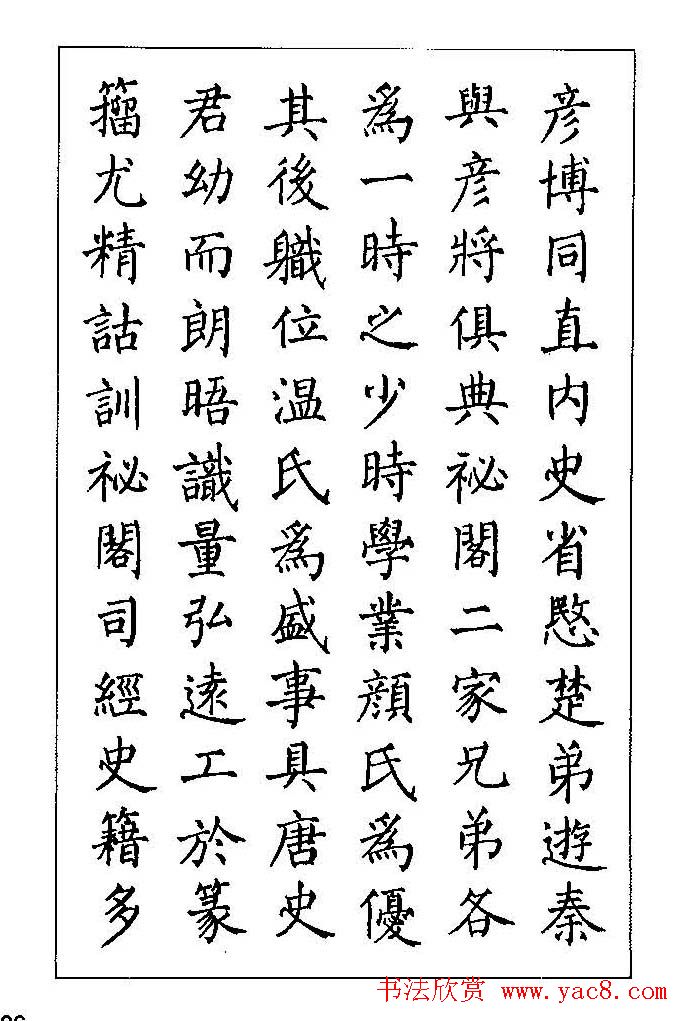 彦博同直内史省愍楚弟遊秦
與彦將俱典祕閣二家兄弟各
爲一時之少時學業顔氏爲優
其後職位温氏爲盛事具唐史
君幼而朗晤識量弘遠工於篆
籀尤精詁訓祕閣司經史籍多
书法欣赏 www.yac8.com